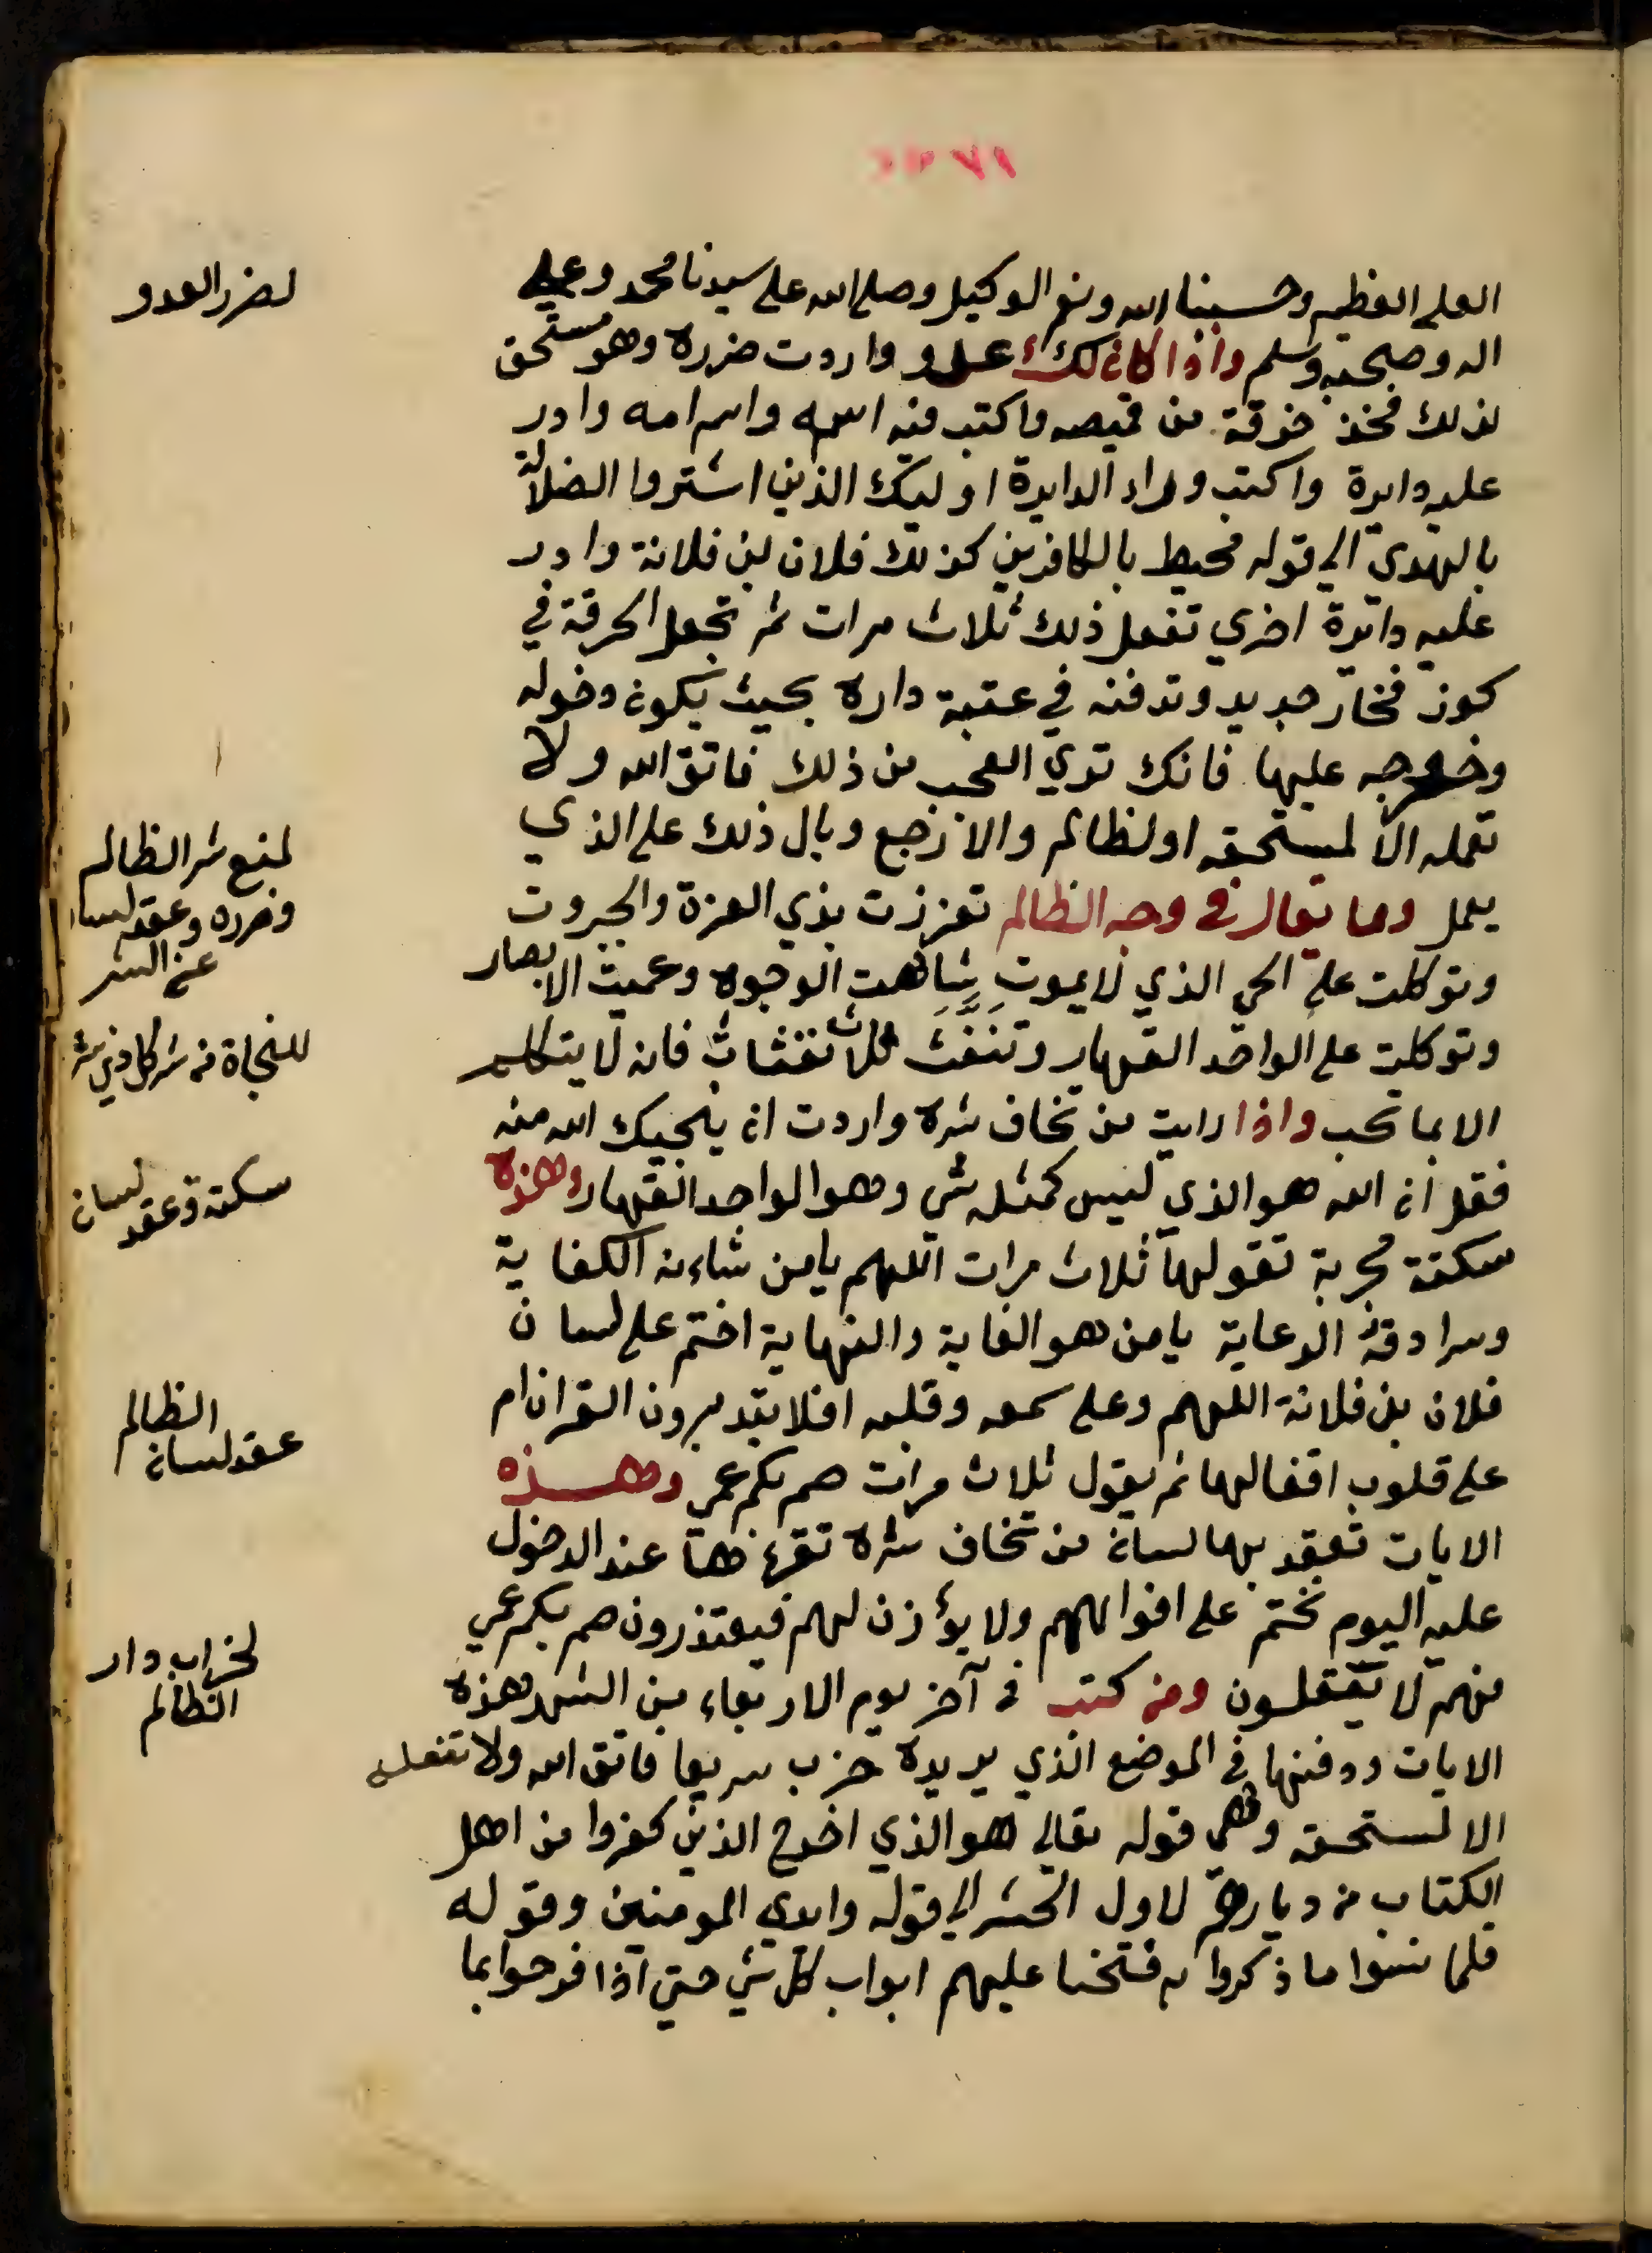 العلي العظيم وحسبنا الله ونعم الوكيل وصلى الله على سيدنا محمد وعلى
لضرر العدو
اله وصحبه وسلم واذا كان لك عدو واردت ضرره وهو مستحق
لذلك فخذ خرقة من قميصه واكتب فيه اسمه واسم امه وادر
عليه دايرة واكتب وراء الدايرة اوليك الذين اشتروا الضلالة
بالهدي الي قوله محيط بالكافرين كذلك فلان بن فلانة وادر
عليه دائرة اخري تفعل ذلك ثلاث مرات ثم تجعل الخرقة في
كوز فخار جديد وتدفنه في عتبة داره بحيث يكون دخوله
وخروجه عليها فانك تري العجب من ذلك فاتق الله ولا
تعمله الا لمستحقه او لظالم والا رجع وبال ذلك على الذي
لمنع شر الظالم
وضرره وعقد لسانه
عن الشر
يعمل ومما يقال في وجه الظالم تعززت بذي العزة والجبروت
وتوكلت على الحي الذي لا يموت شاهت الوجوه وعميت الابصار
وتوكلت على الواحد القهار وتنفث ثلاث نفثات فانه لا يتكلم
للنجاة من شر كل ذي شر
الا بما تحب واذا رايت من تخاف شره واردت ان ينجيك الله منه
فقل ان الله هو الذي ليس كمثله شي وهو الواحد القهار وهذه
سكتة وعقد لسان
سكتة مجربة تقولها ثلاث مرات اللهم يا من شاءنه الكفاية
وسرادقه الرعاية يا من هو الغاية والنهاية اختم على لسان
فلان بن فلانة اللهم وعلى سمعه وقلبه افلا يتدبرون القران ام
على قلوب اقفالها ثم يقول ثلاث مرات صم بكم عمي وهذه
عقد لسان الظالم
الايات تعقد بها لسان من تخاف شره تقرءها عند الدخول
عليه اليوم نختم على افواههم ولا يؤذن لهم فيعتذرون صم بكم عمي
فهم لا يعقلون ومن كتب في آخر يوم الاربعاء من الشهر هذه
لخراب دار
الظالم
الايات ودفنها في الموضع الذي يريده خرب سريعا فاتق الله ولا تفعله
الا لمستحقه وهي قوله تعالي هو الذي اخرج الذين كفروا من اهل
الكتاب من ديارهم لاول الحشر الي قوله وايدي المومنين وقوله
فلما نسوا ما ذكروا به فتحنا عليهم ابواب كل شي حتي اذا فرحوا بما